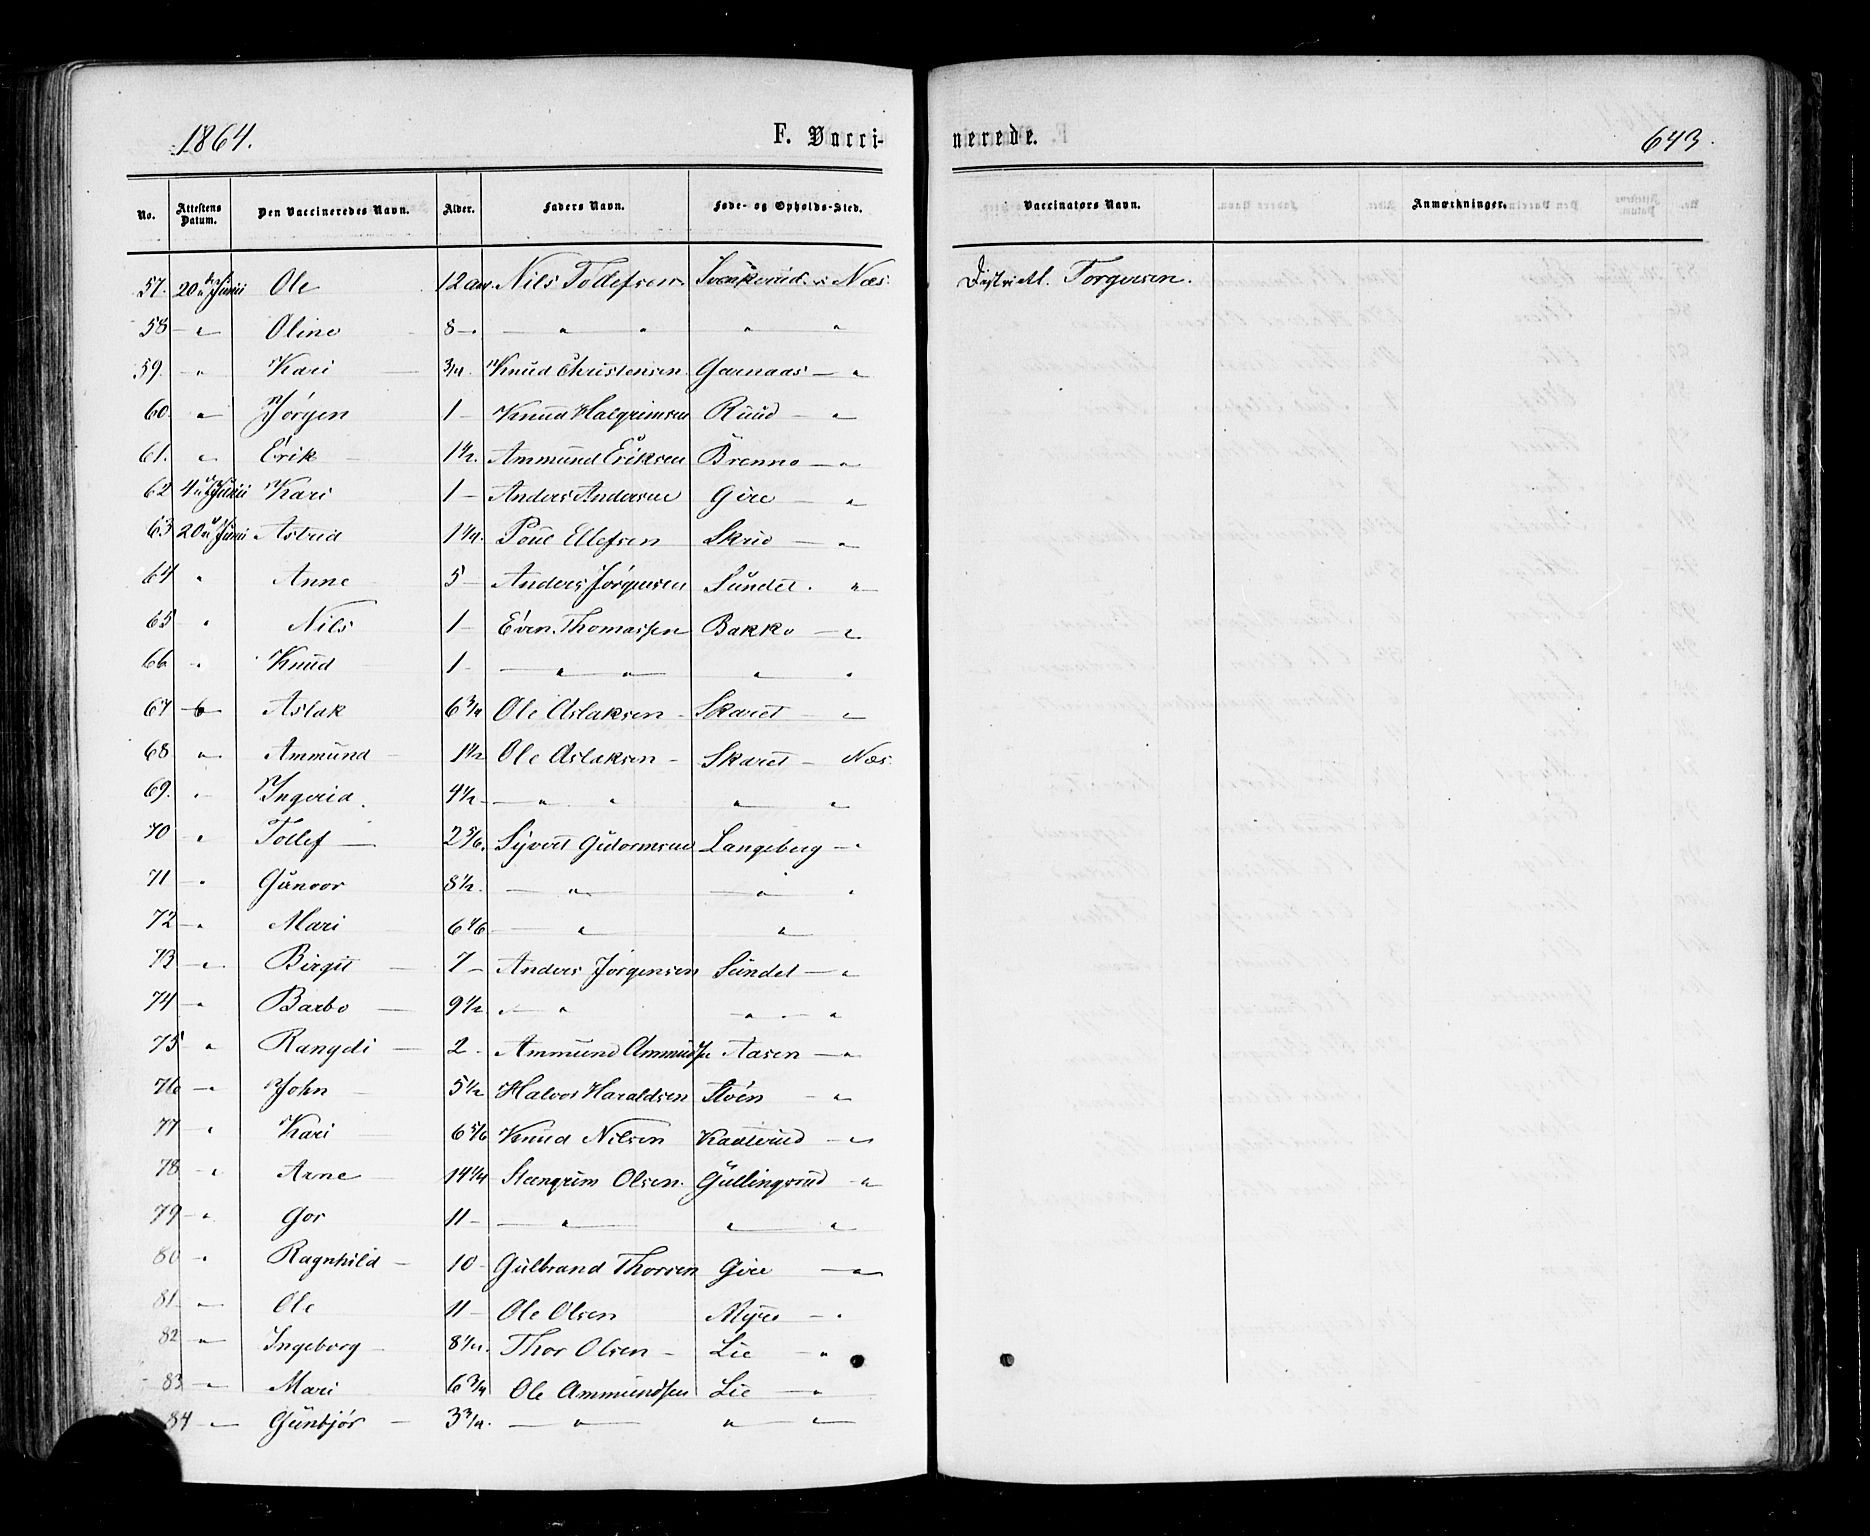 1864. F. Vacci-
No. Attestens Datum. Den Vaccineredes Navn. Alder. Faders Navn. Føde- og Opholds-Sted.
57. 20de Junii Ole 12 aar. Nils Tollefsen Næs.
58 — " Oline 8 — — " " " "
59. " Kari — 3/4. Knud Christensen Garnaas — "
60. " Jørgen 1 — Knud Halgrimsen Ruud — "
61. " Erik — 1 1/2. Ammund Eriksen Brenno — "
62 4de Junii Kari 1 — Anders Andersen Gire — "
63 20de Junii Astrid 1 1/4. Poul Ellefsen Skrid — "
64 " Anne 5 — Anders Jørgensen Sundet. "
65 " Nils 1 — Even Thomassen Bakko — "
66 " Knud 1 — — " " " "
67 — " — Aslak 6 3/4 Ole Aslaksen — Skaret — "
68 " Ammund — 1 1/2 Ole Aslaksen — Skaret — Næs.
69. " Ingerid. 4 1/2 — — " " " "
70 " Tollef — 2 5/6. Syvert Gutormsen Langeberg — "
71 — " Gunvor 8 1/2. — " — — " — "
72 — " Mari 6 4/6 — " — "
73 — " Birgit — 7 — Anders Jørgensen Sundet — "
74 — " Barbo — 9 1/2. " — " " — "
75 — " Rangdi — 2 — Ammund Ammudsen Aasen — "
76 — " John — 5 1/2 Halvor Haraldsen Støen — "
77 — " Kari — 6 5/6 Knud Nilsen — "
78 — " Arne — 14 1/4 Steengrim Olsen. Gullingsrud — "
79 — " Gor 11 — — " — " "
80 — " Ragnhild — 10 — Gulbrand Thorsen Gire — "
81 — " Ole 11 — Ole Olsen Myre — "
82 — " Ingeborg — 8 1/4. Thor Olsen — Lie — "
83 — " Mari 6 3/4 Ole Ammundsen Lie — "
84 — " — Gunbjør — 3 3/4. — " — " "
nerede. 643.
Vaccinators Navn. Anmærkninger.
Torgersen.